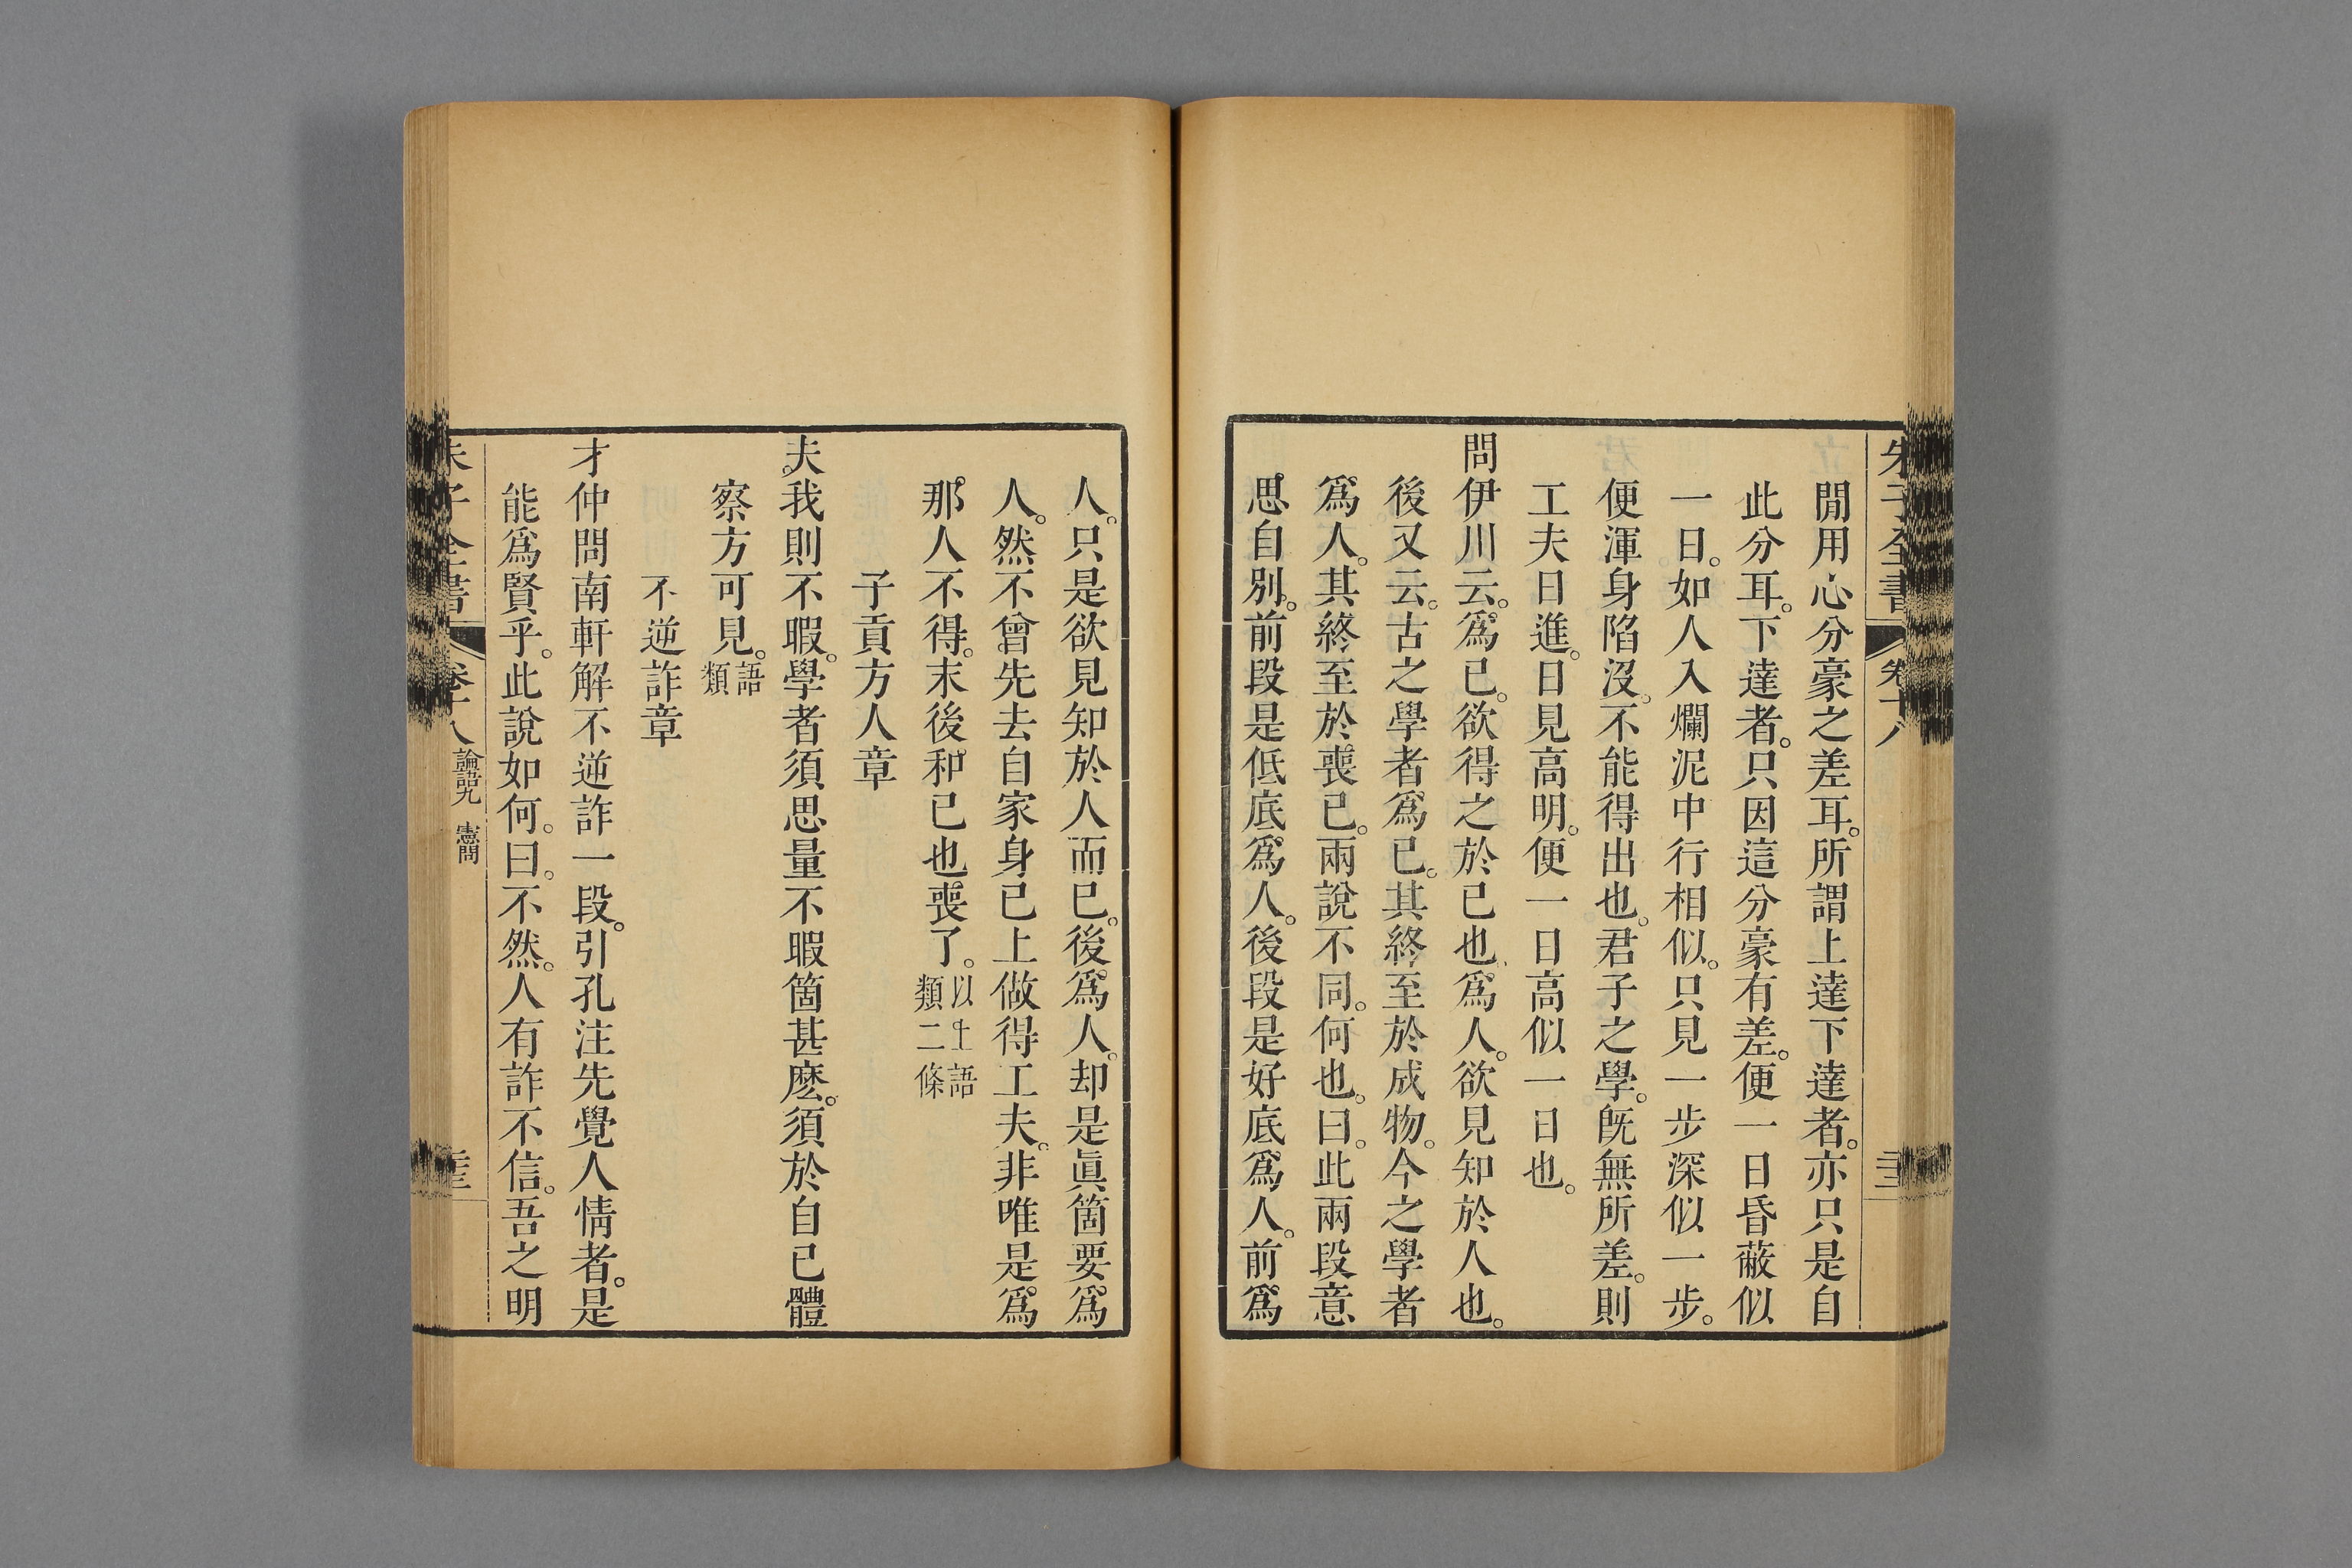 朱子全書 卷十八
閒用心分豪之差耳。所謂上達下達者。亦只是自
此分耳。下達者。只因這分豪有差。便一日昏蔽似
一日。如人入爛泥中行相似。只見一步深似一步。
便渾身陷沒。不能得出也。君子之學。旣無所差。則
工夫日進。日見高明。便一日高似一日也。
問伊川云。爲已。欲得之於已也。爲人。欲見知於人也。
後又云。古之學者爲已。其終至於成物。今之學者
爲人。其終至於喪已。兩說不同。何也。曰。此兩段意
思自別。前段是低底爲人。後段是好底爲人。前爲
人。只是欲見知於人而已。後爲人。却是眞箇要爲
人。然不曾先去自家身已上做得工夫。非唯是爲
那人不得。末後和已也喪了。以上語類二條
子貢方人章
夫。我則不暇。學者須思量不暇箇甚麽。須於自已體
察方可見。語類
不逆詐章
才仲問南軒解不逆詐一段。引孔注先覺人情者。是
能爲賢乎。此說如何。曰。不然。人有詐不信。吾之明
朱子全書 卷十八 論語九 憲問